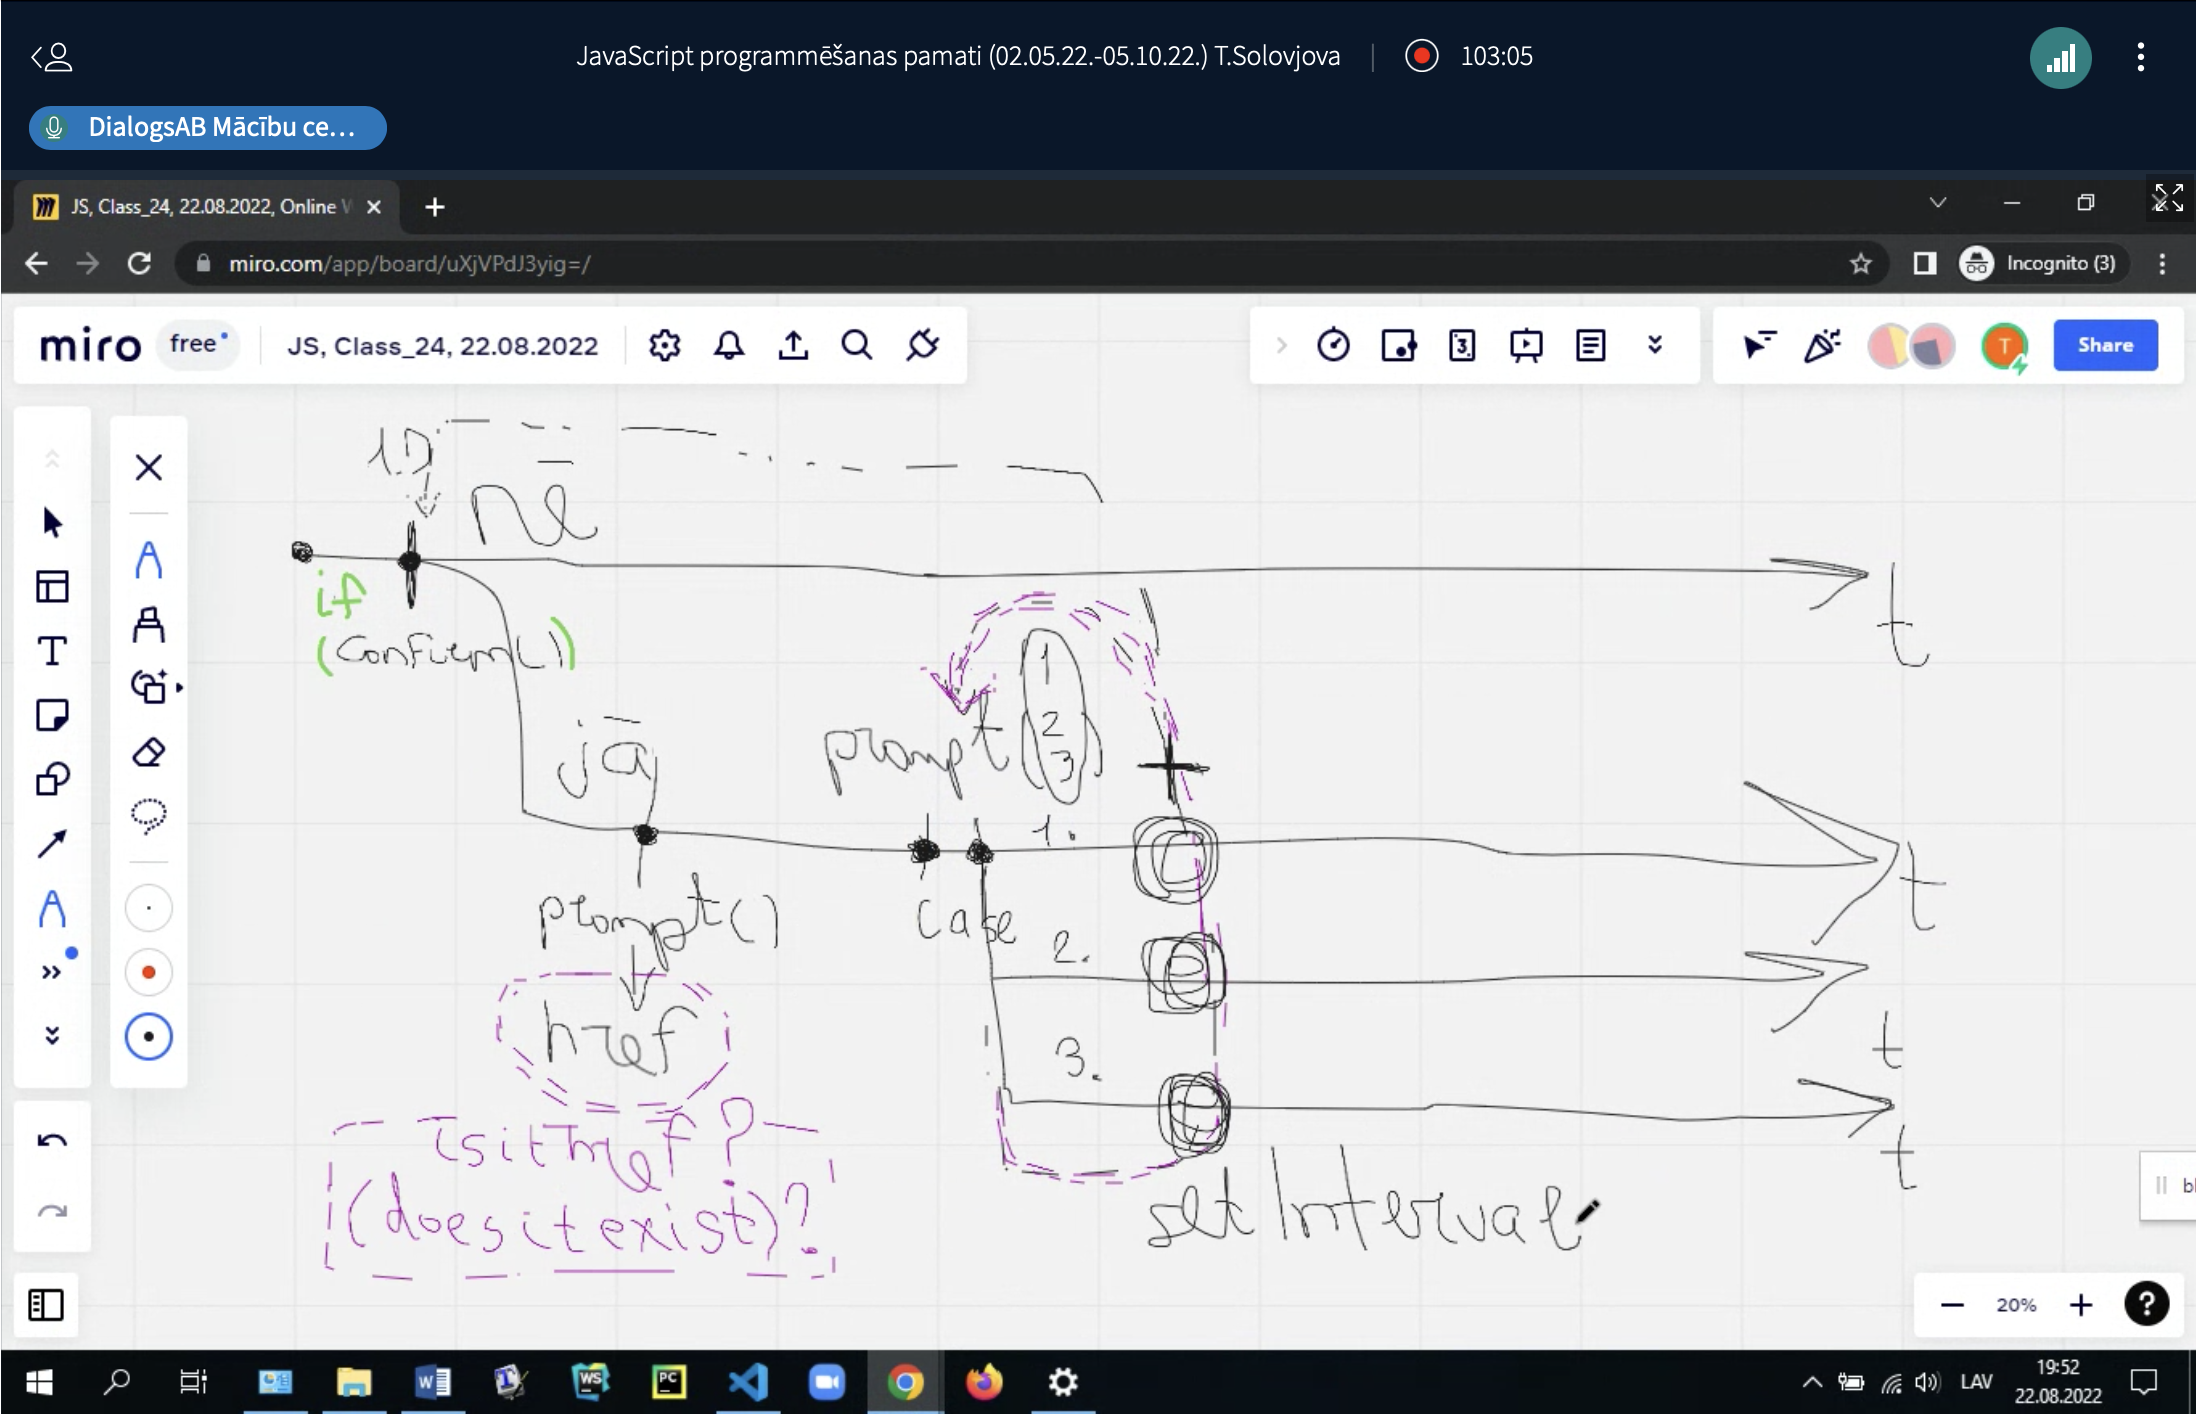 JavaScript programmēšanas pamati (02.05.22.-05.10.22.) T.Solovjova | 103:05
DialogsAB Mācību ce...
JS, Class_24, 22.08.2022, Online W
miro.com/app/board/uXjVPdJ3yig=/
Incognito (3)
miro free JS, Class_24, 22.08.2022
3
T
Share
1.D
nē
if
(confirm())
t
jā
prompt(1
2
3)
1.
t
prompt()
case
2.
href
t
3.
isitHref?
(does it exist)?
t
setInterval
bl
20%
?
W
WS
PC
LAV
19:52
22.08.2022